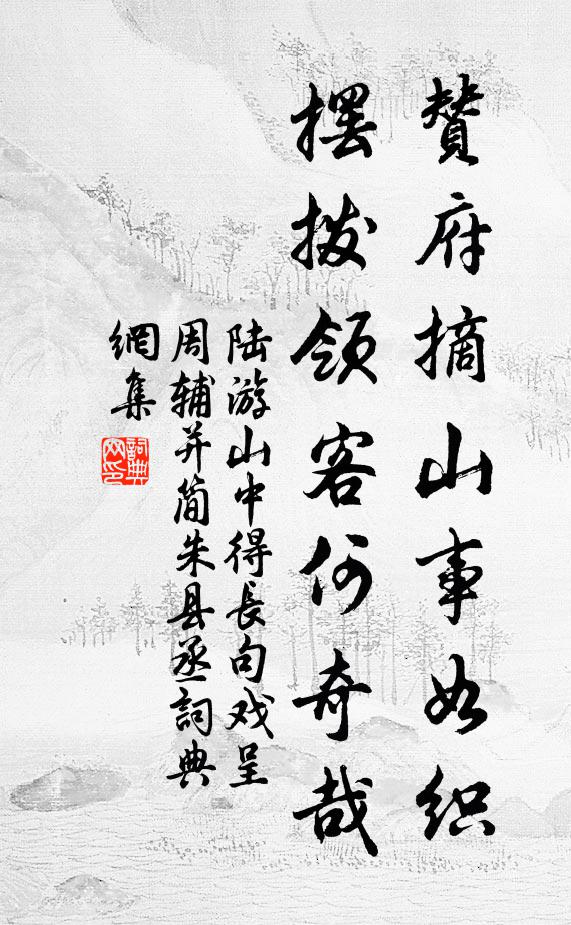 贊府摘山事如织
摆拨领客何奇哉
陆游山中得長句戏呈
周辅并简朱县丞詞典
網集
詞典
网印